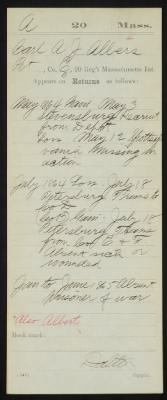 A 20 Mass.
Carl A. J. Albers
Pvt., Co. E, 20 Reg't Massachusetts Inf.
Appears on Returns as follows:
May 1864 Gain, May 3
Stevensburg Recruit
from Depot
Loss May 12 Spottsyl
vania Missing in
action
July 1864 Loss July 18
Petersburg Trans to
Co. F
Co. F Gain July 18
Petersburg Trans
from Co. E
Absent sick or
wounded
Jan to June 65 Absent
Prisoner of war
*Also Albert
Book mark:
(546)
Copyist.